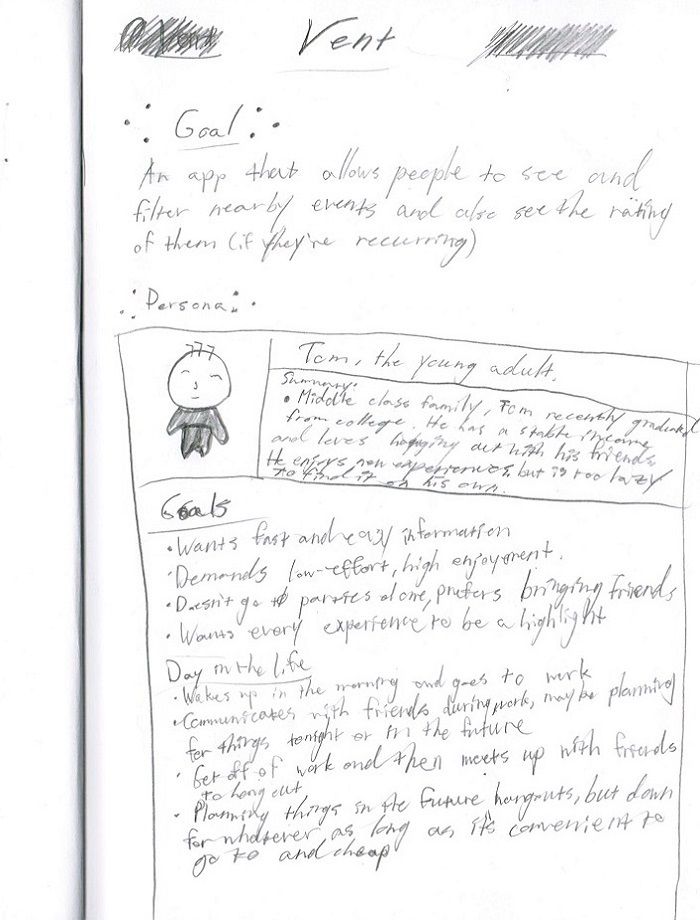 Vent
Goal
An app that allows people to see and
filter nearby events and also see the rating
of them (if they're recurring)
Persona
Tom, the young adult.
Summary:
• Middle class family, Tom recently graduated
from college. He has a stable income
and loves hanging out with his friends.
He enjoys new experiences, but is too lazy
to find it on his own.
Goals
• Wants fast and easy information
• Demands low-effort, high enjoyment.
• Doesn't go to parties alone, prefers bringing friends
• Wants every experience to be a highlight
Day in the life
• Wakes up in the morning and goes to work
• Communicates with friends during work, maybe planning
for things tonight or in the future
• Get off of work and then meets up with friends
to hang out
• Planning things in the future hangouts, but down
for whatever, as long as its convenient to
go to and cheap